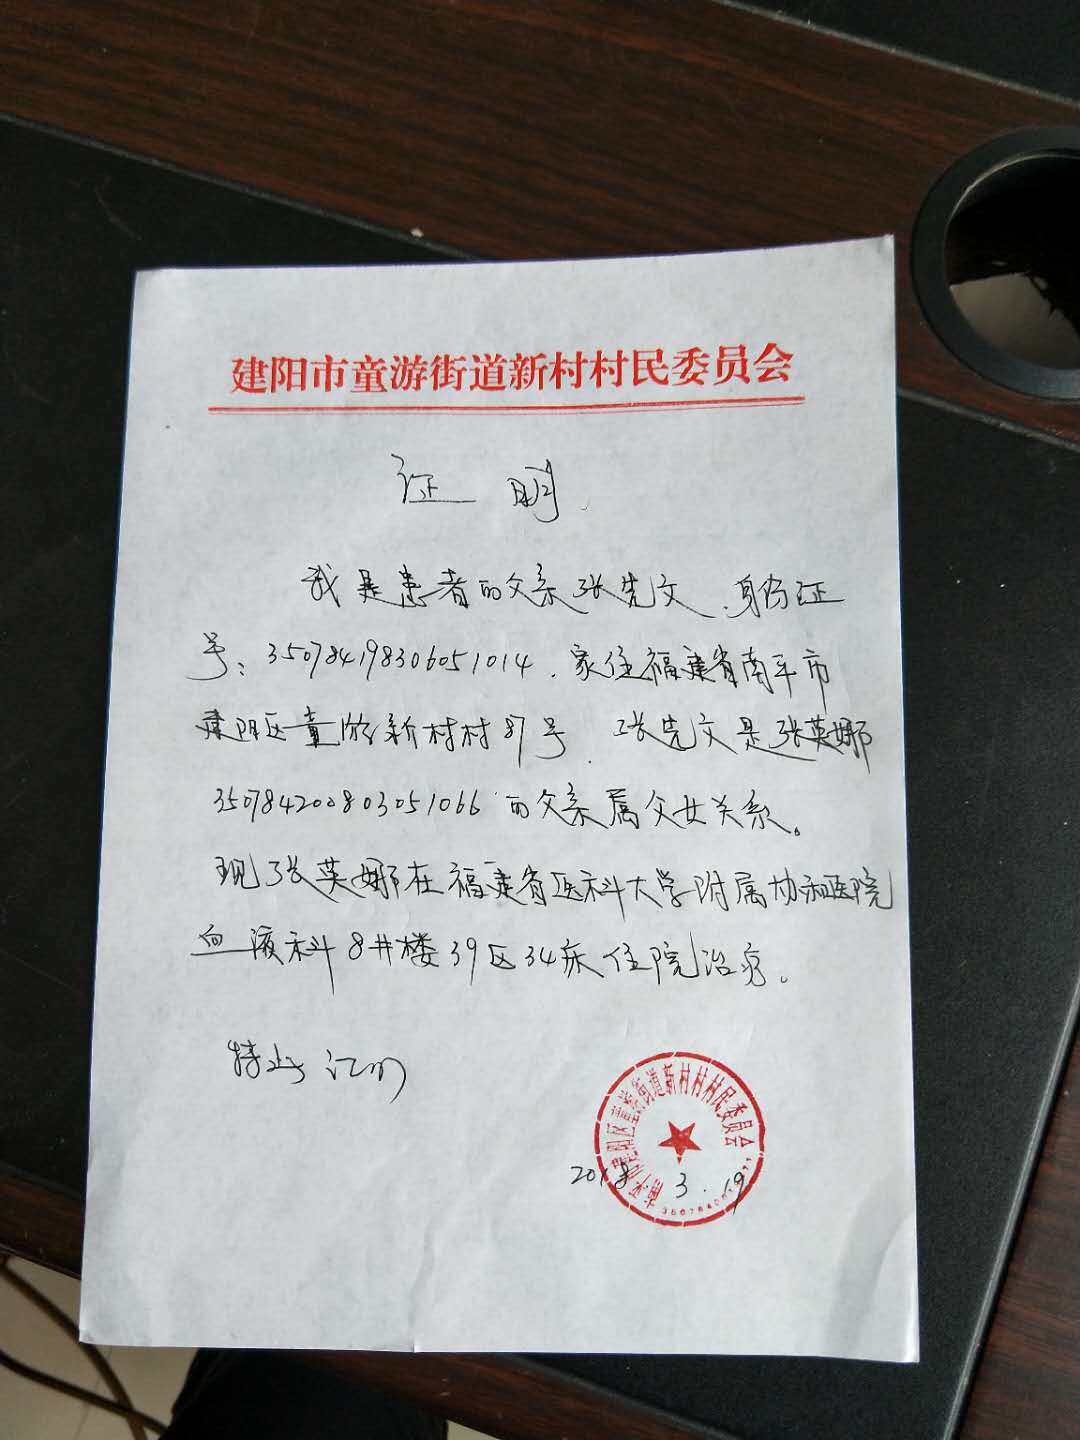 建阳市童游街道新村村民委员会
证 明
我是患者的父亲张先文、身份证
号：350784198306051014.家住福建省南平市
建阳区童游新村村87号.张先文是张英娜
350784200803051066的父亲属父女关系。
现张英娜在福建省医科大学附属协和医院
血液科8井楼39区34床住院治疗。
特此证明
南平市建阳区童游街道新村村村民委员会
2018.3.19